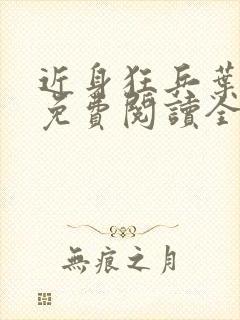 近身狂兵葉
免費閱讀全
無痕之月